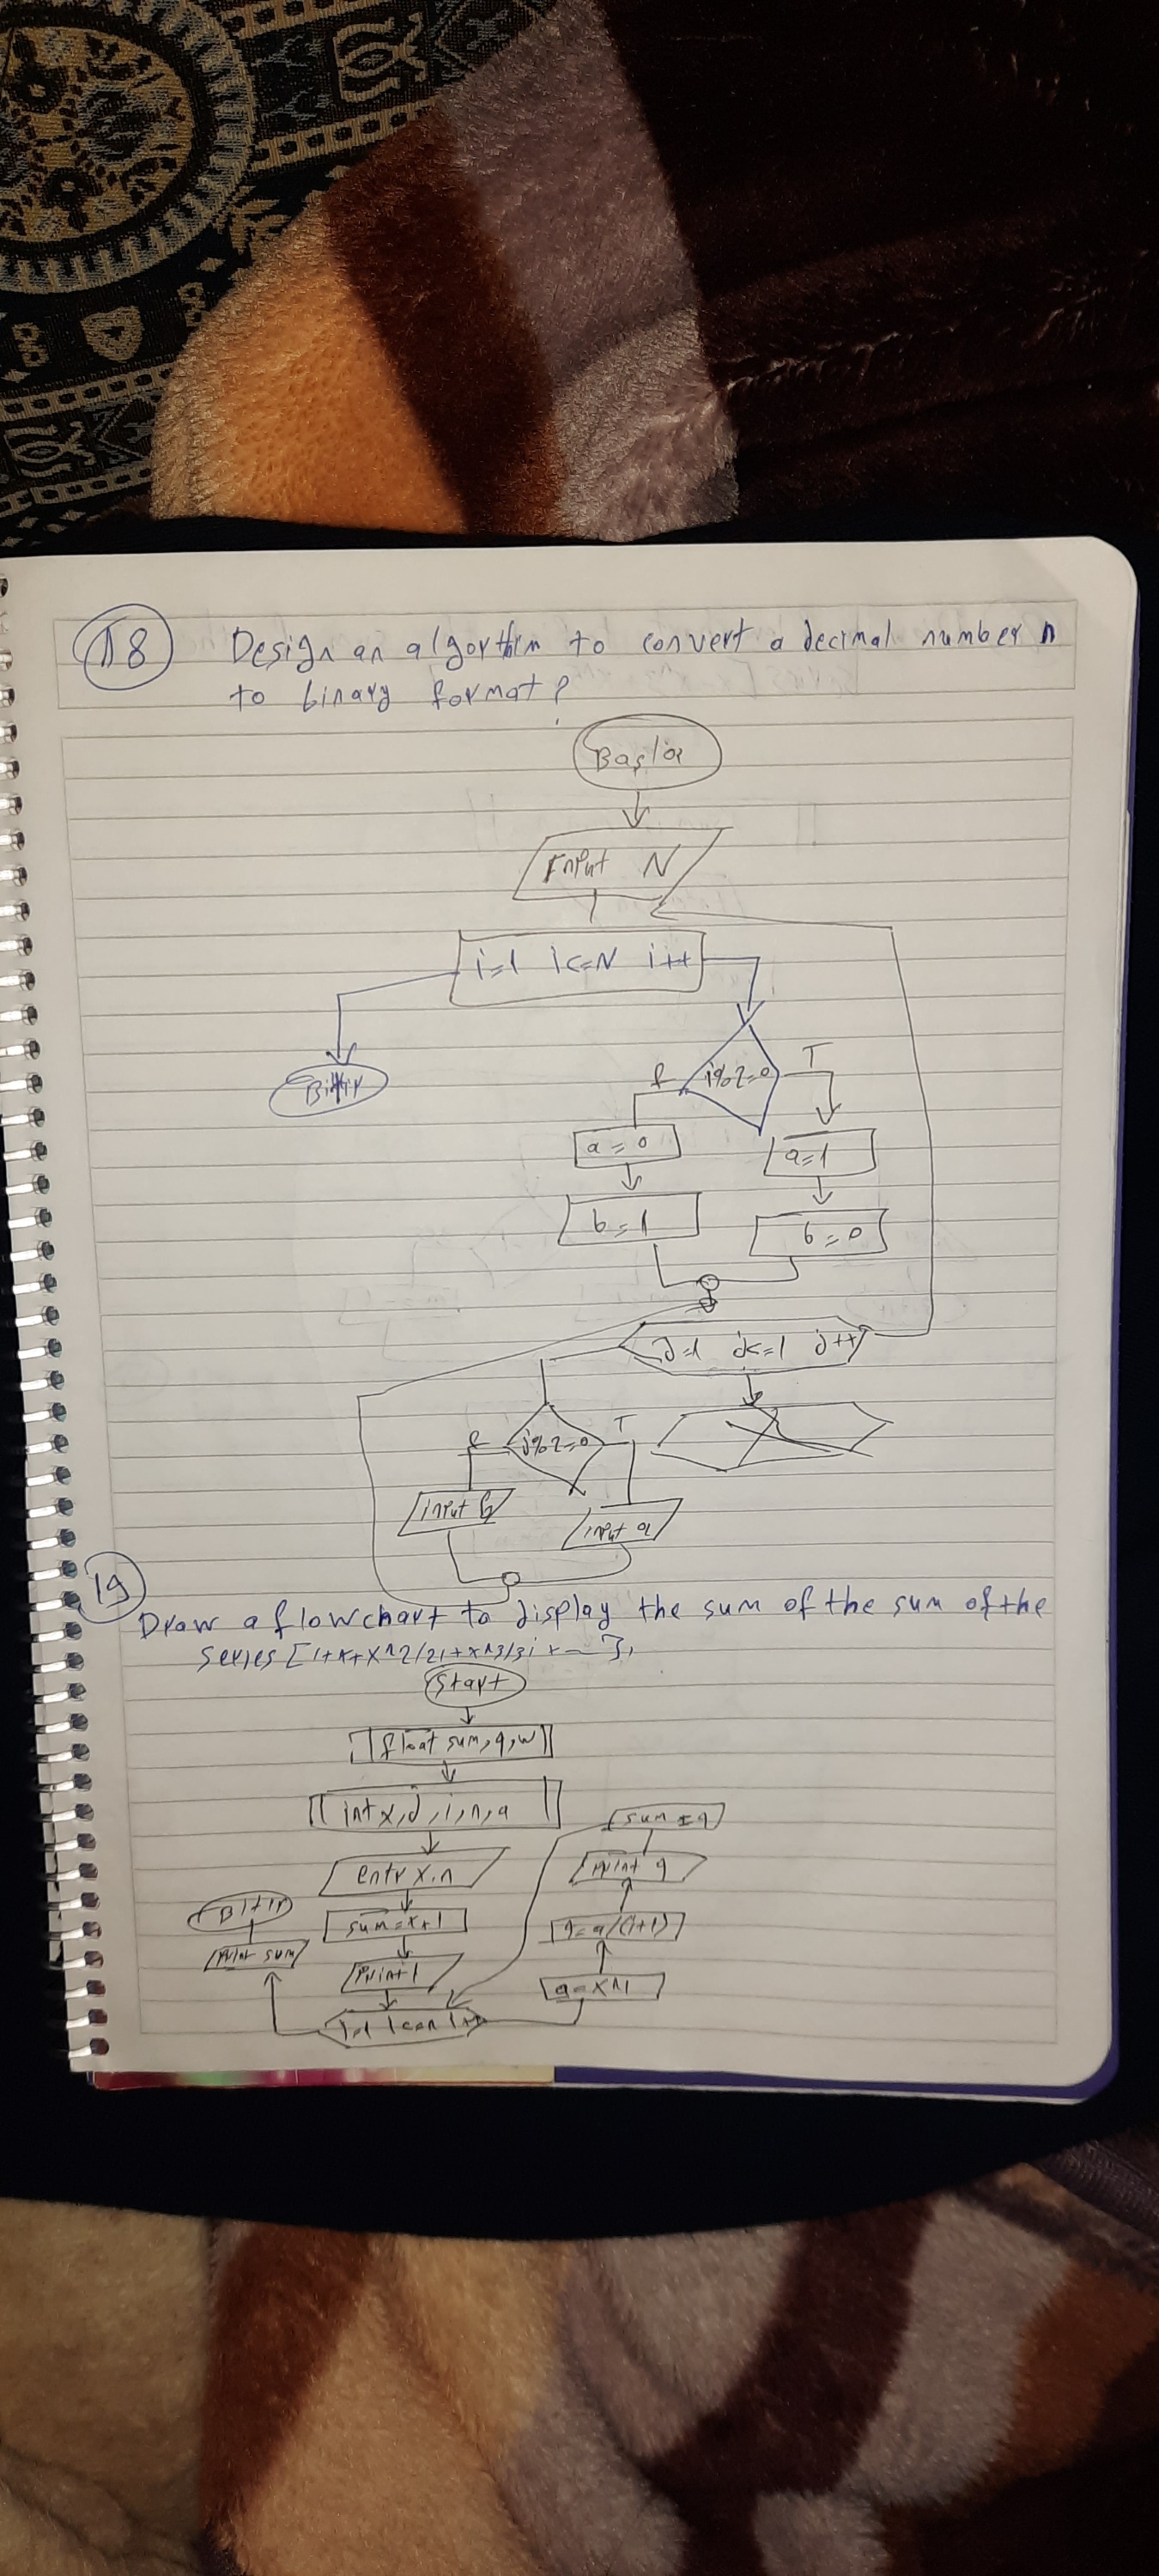 18 Design an algorthim to convert a decimal number n
to binary format?
Başla
Input N
i=1 i<=N i++
Bitir
i%2=0
f T
a=0
a=1
b=1
b=0
j=1 j<=1 j++
j%2=0
f T
input b
input a
19
Draw a flowchart to display the sum of the sum of the
series [1+x+x^2/2!+x^3/3! +
Start
float sum, q, w
int x, j, i, n, a
sum = q
entr x.n
Print q
Bitir
sum=x+1
q=a/(i+1)
Print sum
Print 1
a=x^i
i=1 i<=n i++